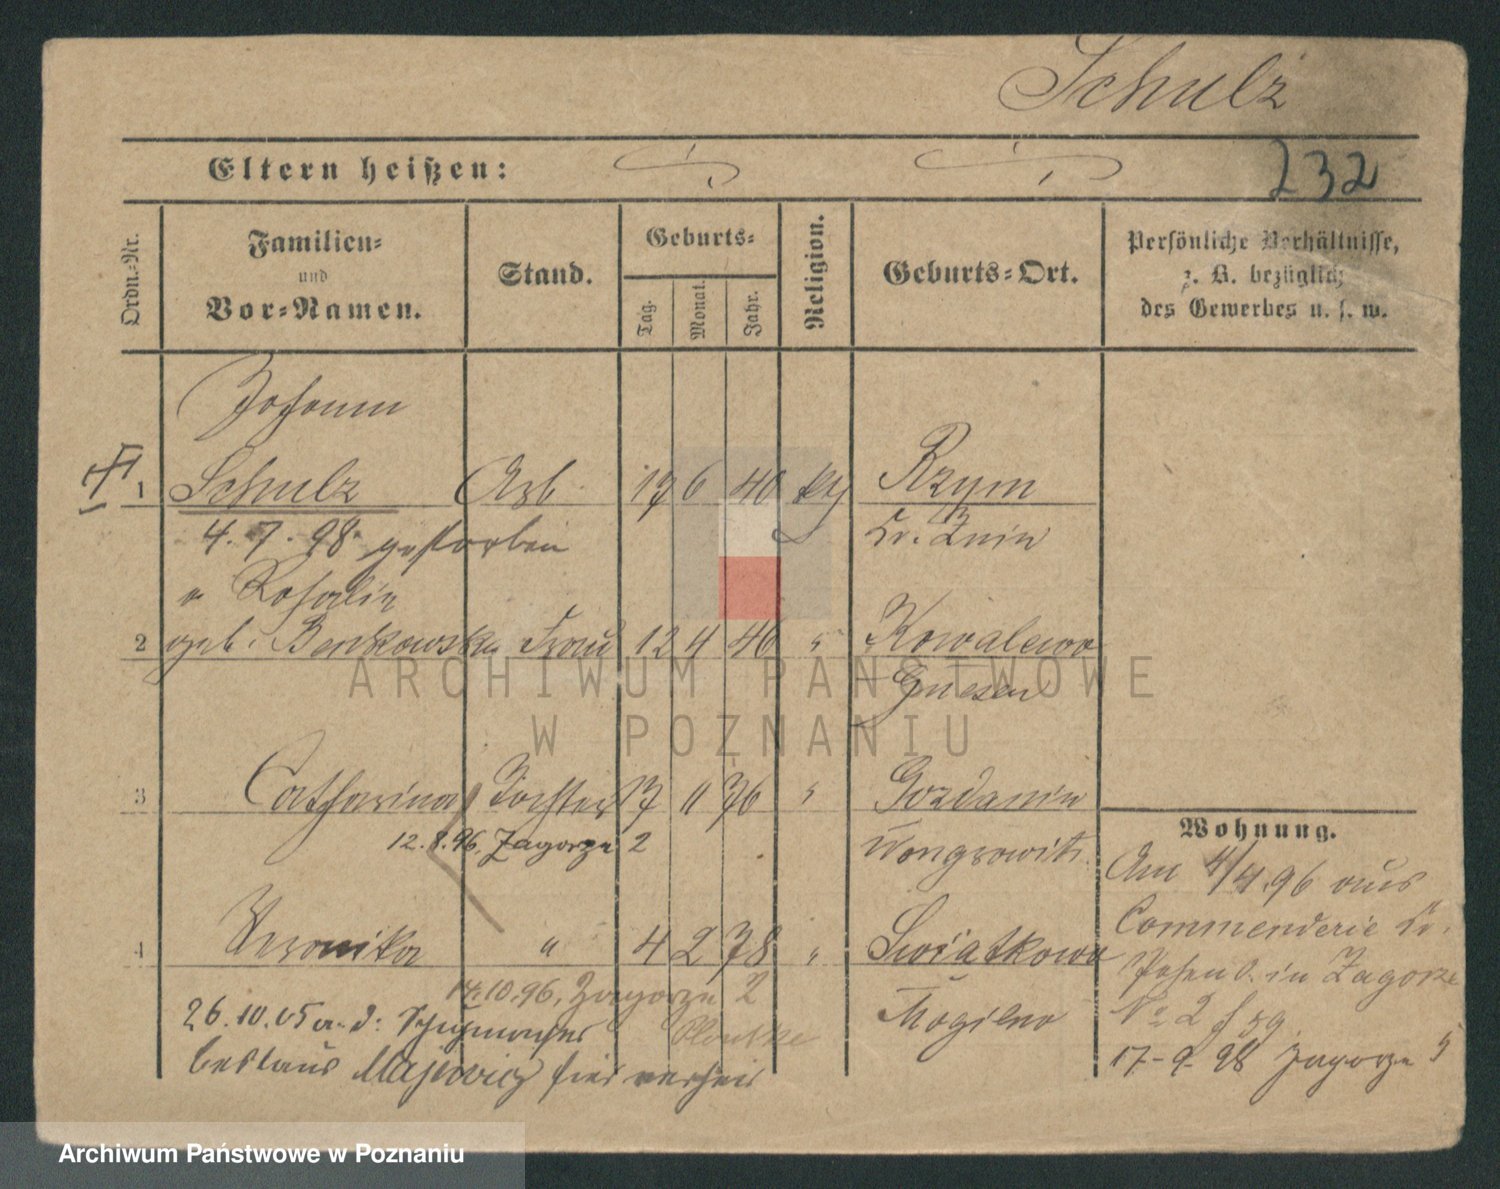 Schulz
Eltern heißen:
232
Ordn.-Nr.
Familien-
und
Vor-Namen.
Stand.
Geburts-
Tag.
Monat.
Jahr.
Religion.
Geburts-Ort.
Persönliche Verhältnisse,
z. B. bezüglich
des Gewerbes u. s. w.
Johann
1 Schulz Arb 17 6 40 kth Rzym
4. 7. 98 gestorben Kr. Znin
Rosalie
2 geb. Benkowska Frau 12 4 46 " Kowalewo
Gnesen
3 Catharina Tochter 17 11 76 " Gozdanin
12. 8. 96. Zagorze 2 Wongrowitz
4 Veronika " 4 2 78 " Swiatkowo
14.10.96, Zagorze 2 Mogilno
26.10.05 a. d.
Majewicz hier verheir
Wohnung.
Am 4/4.96 aus
Commenderie Kr.
Posen O. in Zagorze
No 2
17-9-98 Zagorze 5
ARCHIWUM PAŃSTWOWE
W POZNANIU
Archiwum Państwowe w Poznaniu